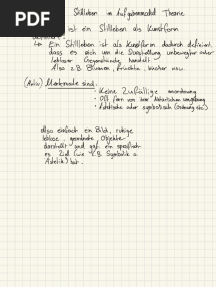 PDF
Stillleben im Aufgabenmodul Theorie
ist ein Stillleben als Kunstform
Ein Stillleben ist als Kunstform dadurch definiert,
dass es sich um die Darstellung unbewegter oder
lebloser Gegenstände handelt.
Also z.B Blumen, Früchte, bücher usw.
Merkmale sind:
· Keine Zufällige anordnung
· Oft fern von ihrer Natürlichen umgebung
· Ästhetische oder symbolisch
also einfach ein Bild, ruhige
leblose, geordnete Objekte
darstellt und auf ein spezifisch
es Ziel (wie z.B Symbolik o.
Ästetik) hat.